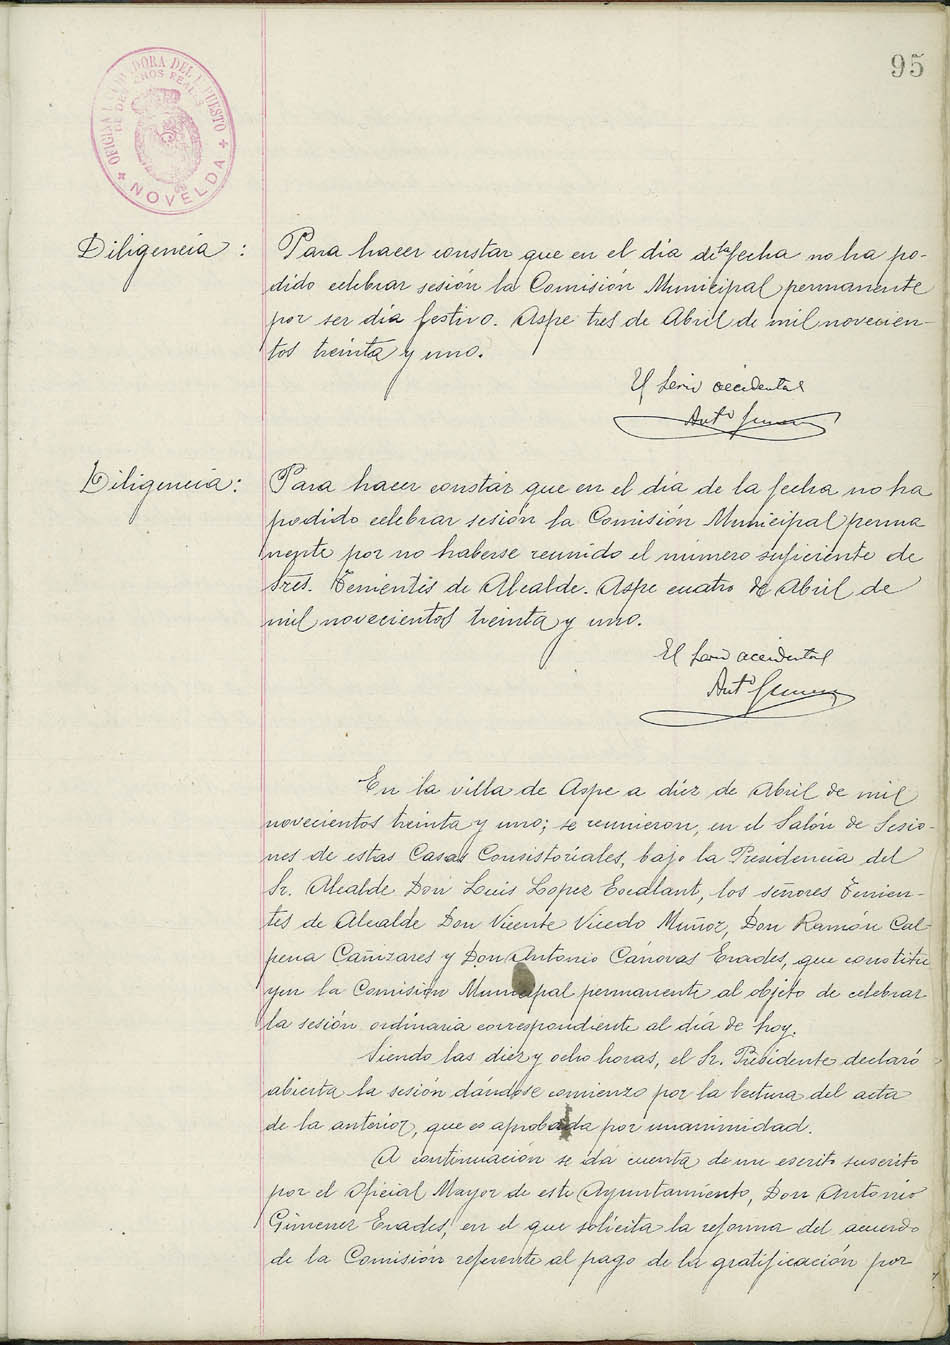 95
OFICINA LIQUIDADORA DEL IMPUESTO
DE DERECHOS REALES
NOVELDA
Diligencia: Para hacer constar que en el día de la fecha no ha po-
dido celebrar sesión la Comisión Municipal permanente
por ser día festivo. Aspe tres de Abril de mil novecien-
tos treinta y uno.
El Srio accidental
Antº Gimenez
Diligencia: Para hacer constar que en el día de la fecha no ha
podido celebrar sesión la Comisión Municipal perma
nente por no haberse reunido el número suficiente de
Sres. Tenientes de Alcalde. Aspe cuatro de Abril de
mil novecientos treinta y uno.
El Srio accidental
Antº Gimenez
En la villa de Aspe a diez de Abril de mil
novecientos treinta y uno; se reunieron, en el Salón de Sesio-
nes de estas Casas Consistoriales, bajo la Presidencia del
Sr. Alcalde Don Luis Lopez Escalant, los señores Tenien-
tes de Alcalde Don Vicente Vicedo Muñoz, Don Ramón Cal-
pena Cañizares y Don Antonio Cánovas Erades, que constitu
yen la Comisión Municipal permanente al objeto de celebrar
la sesión ordinaria correspondiente al día de hoy.
Siendo las diez y ocho horas, el Sr. Presidente declaró
abierta la sesión dándose comienzo por la lectura del acta
de la anterior, que es aprobada por unanimidad.
A continuación se da cuenta de un escrito suscrito
por el Oficial Mayor de este Ayuntamiento, Don Antonio
Gimenez Erades, en el que solicita la reforma del acuerdo
de la Comisión referente al pago de la gratificación por